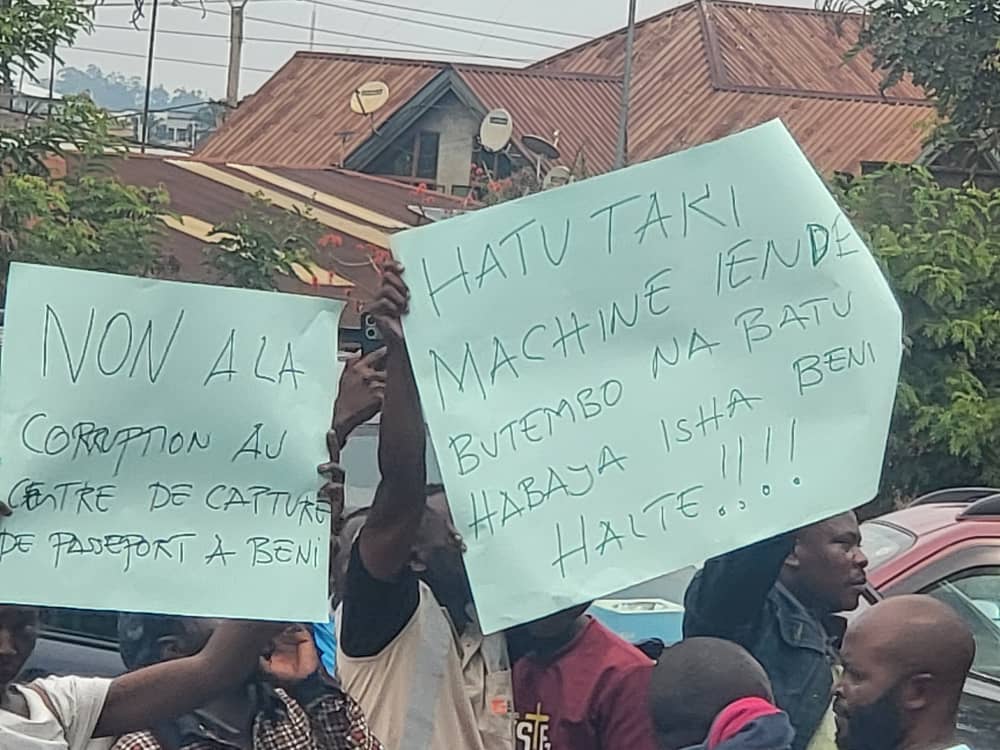 NON A LA
CORRUPTION AU
CENTRE DE CAPTURE
DE PASSEPORT À BENI
HATU TAKI
MACHINE IENDE
BUTEMBO NA BATU
HABAYA ISHA BENI
HALTE... !!!!